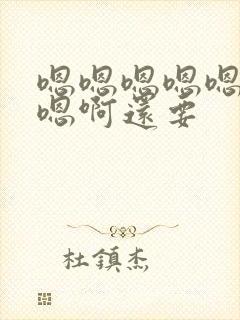 嗯嗯嗯嗯嗯
嗯啊還要
杜鎮杰